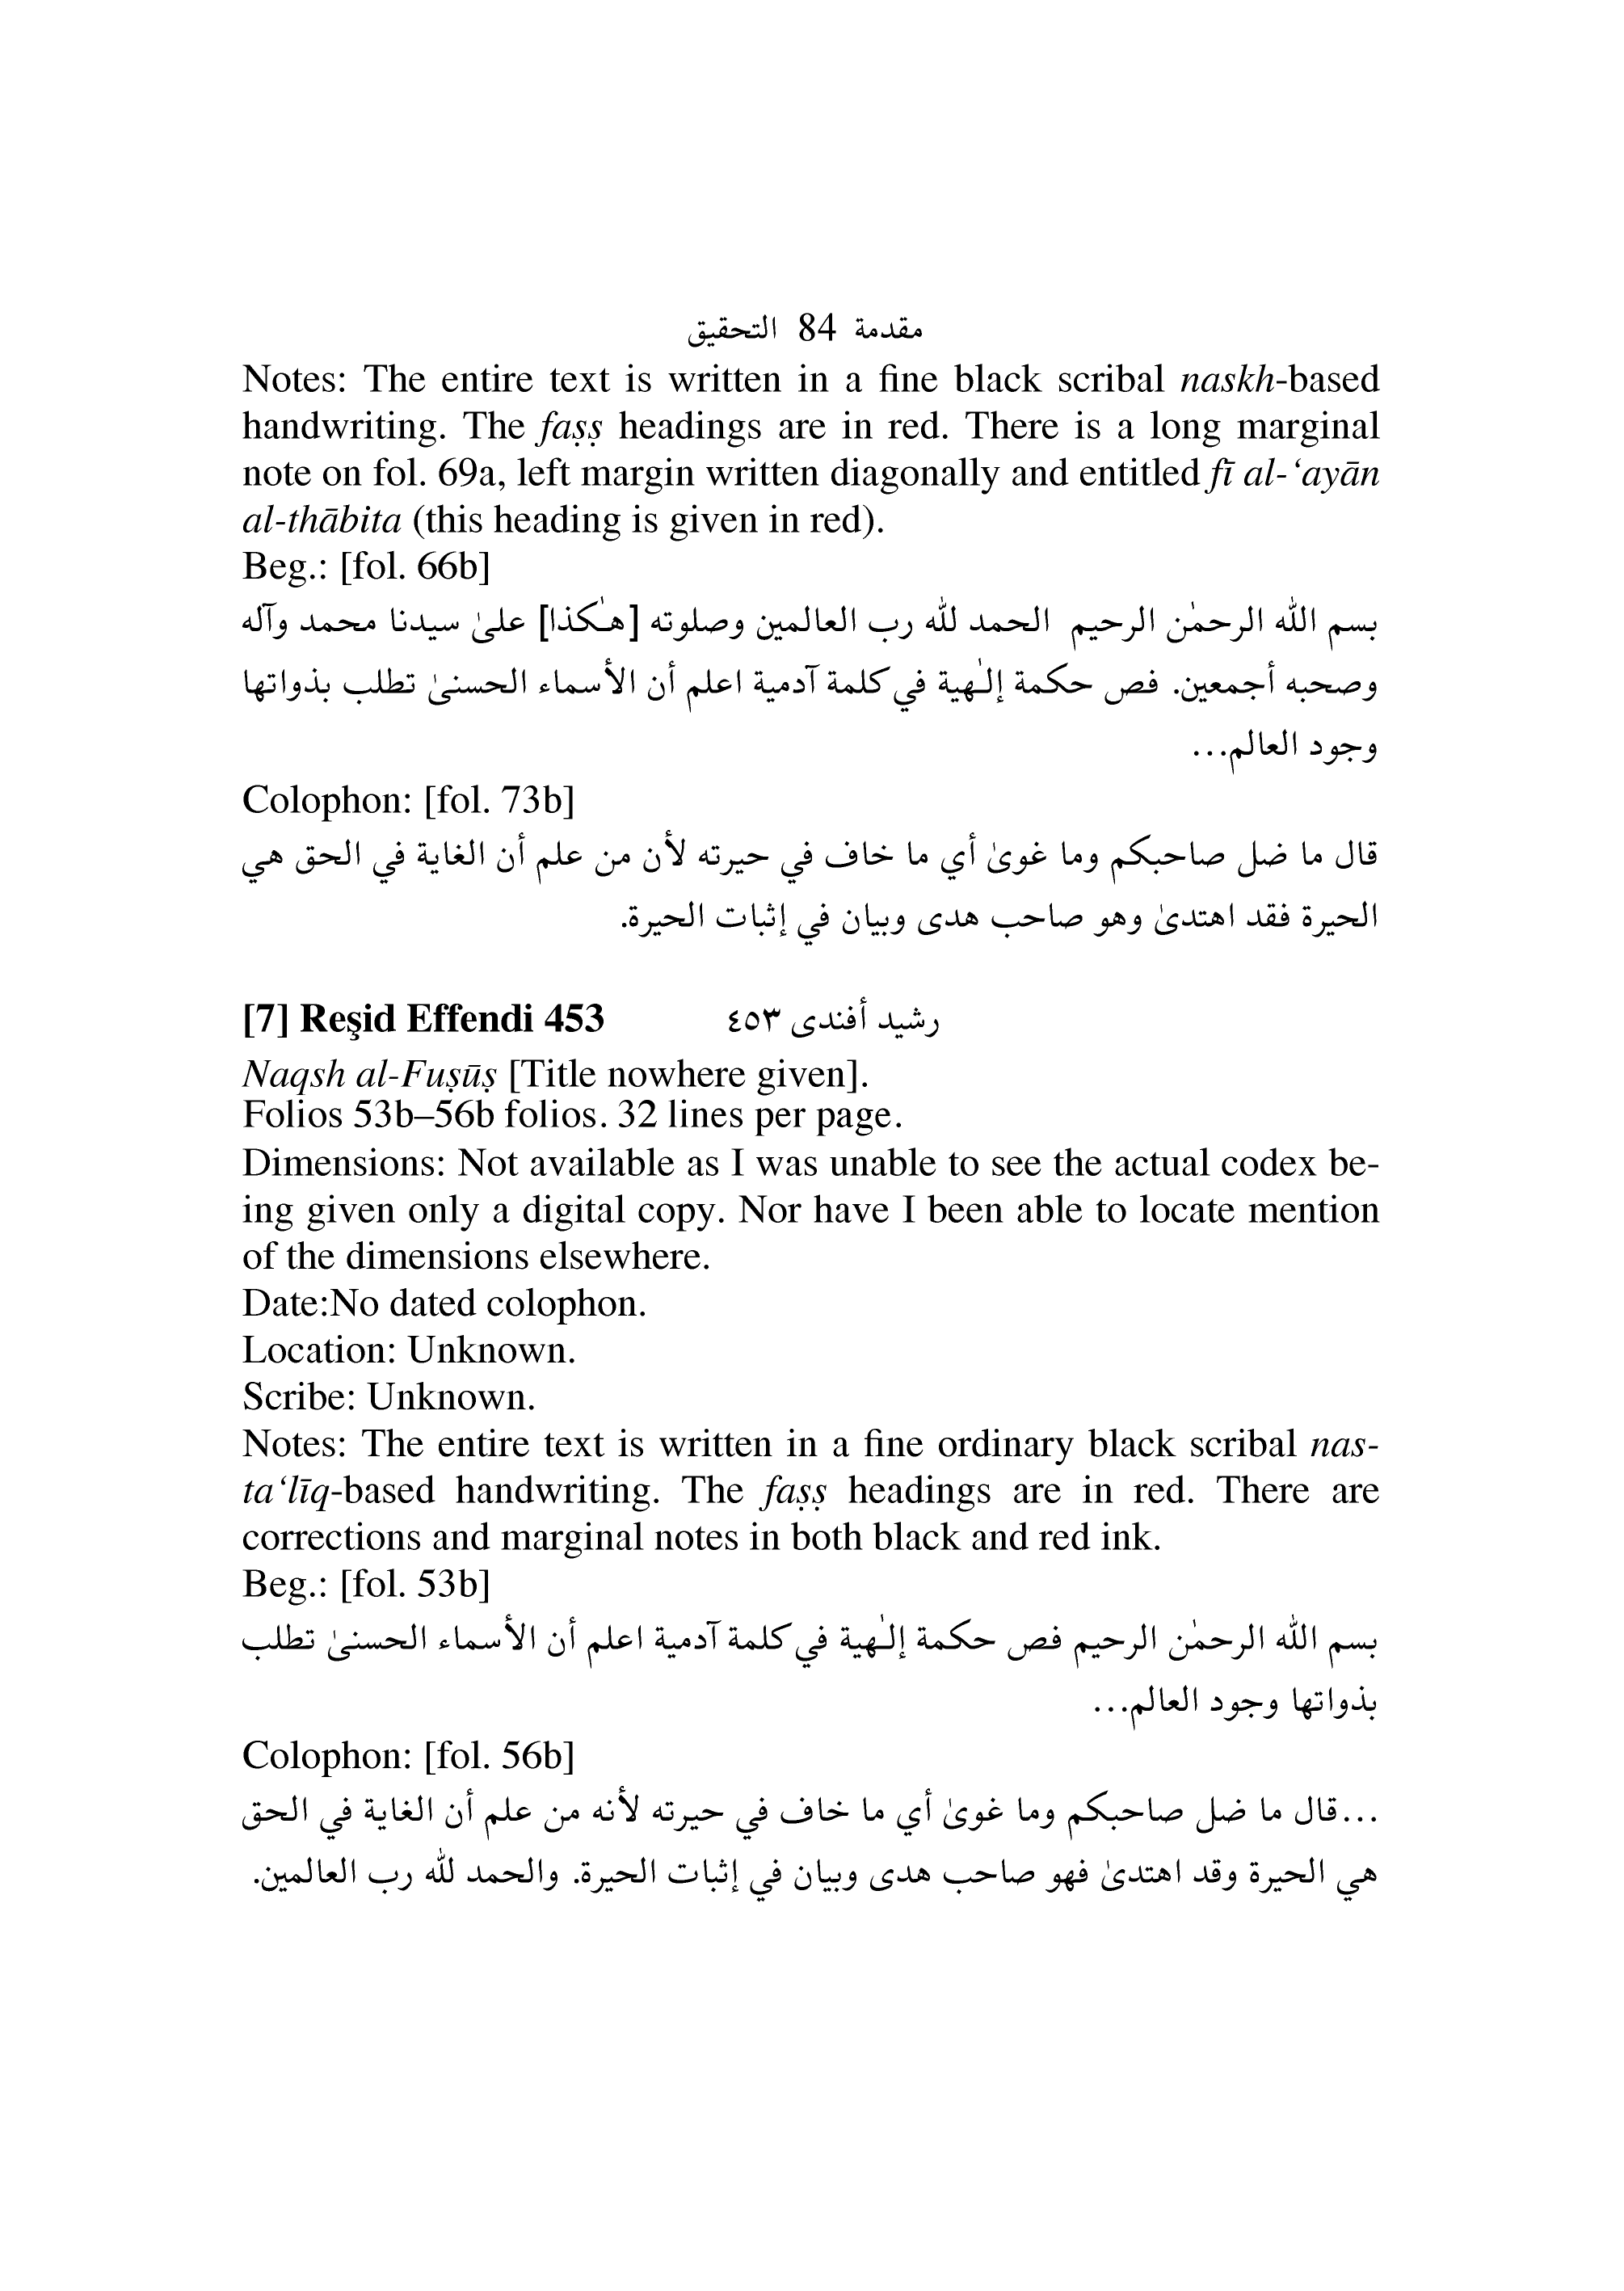 مقدمة 84 التحقيق
Notes: The entire text is written in a fine black scribal naskh-based
handwriting. The faṣṣ headings are in red. There is a long marginal
note on fol. 69a, left margin written diagonally and entitled fī al-‘ayān
al-thābita (this heading is given in red).
Beg.: [fol. 66b]
بسم الله الرحمٰن الرحيم الحمد لله رب العالمين وصلوته [هـٰكذا] علىٰ سيدنا محمد وآله
وصحبه أجمعين. فص حكمة إلـٰهية في كلمة آدمية اعلم أن الأسماء الحسنىٰ تطلب بذواتها
وجود العالم...
Colophon: [fol. 73b]
قال ما ضل صاحبكم وما غوىٰ أي ما خاف في حيرته لأن من علم أن الغاية في الحق هي
الحيرة فقد اهتدىٰ وهو صاحب هدى وبيان في إثبات الحيرة.
[7] Reşid Effendi 453 رشيد أفندى ٤٥٣
Naqsh al-Fuṣūṣ [Title nowhere given].
Folios 53b–56b folios. 32 lines per page.
Dimensions: Not available as I was unable to see the actual codex be-
ing given only a digital copy. Nor have I been able to locate mention
of the dimensions elsewhere.
Date:No dated colophon.
Location: Unknown.
Scribe: Unknown.
Notes: The entire text is written in a fine ordinary black scribal nas-
ta‘līq-based handwriting. The faṣṣ headings are in red. There are
corrections and marginal notes in both black and red ink.
Beg.: [fol. 53b]
بسم الله الرحمٰن الرحيم فص حكمة إلـٰهية في كلمة آدمية اعلم أن الأسماء الحسنىٰ تطلب
بذواتها وجود العالم...
Colophon: [fol. 56b]
...قال ما ضل صاحبكم وما غوىٰ أي ما خاف في حيرته لأنه من علم أن الغاية في الحق
هي الحيرة وقد اهتدىٰ فهو صاحب هدى وبيان في إثبات الحيرة. والحمد لله رب العالمين.